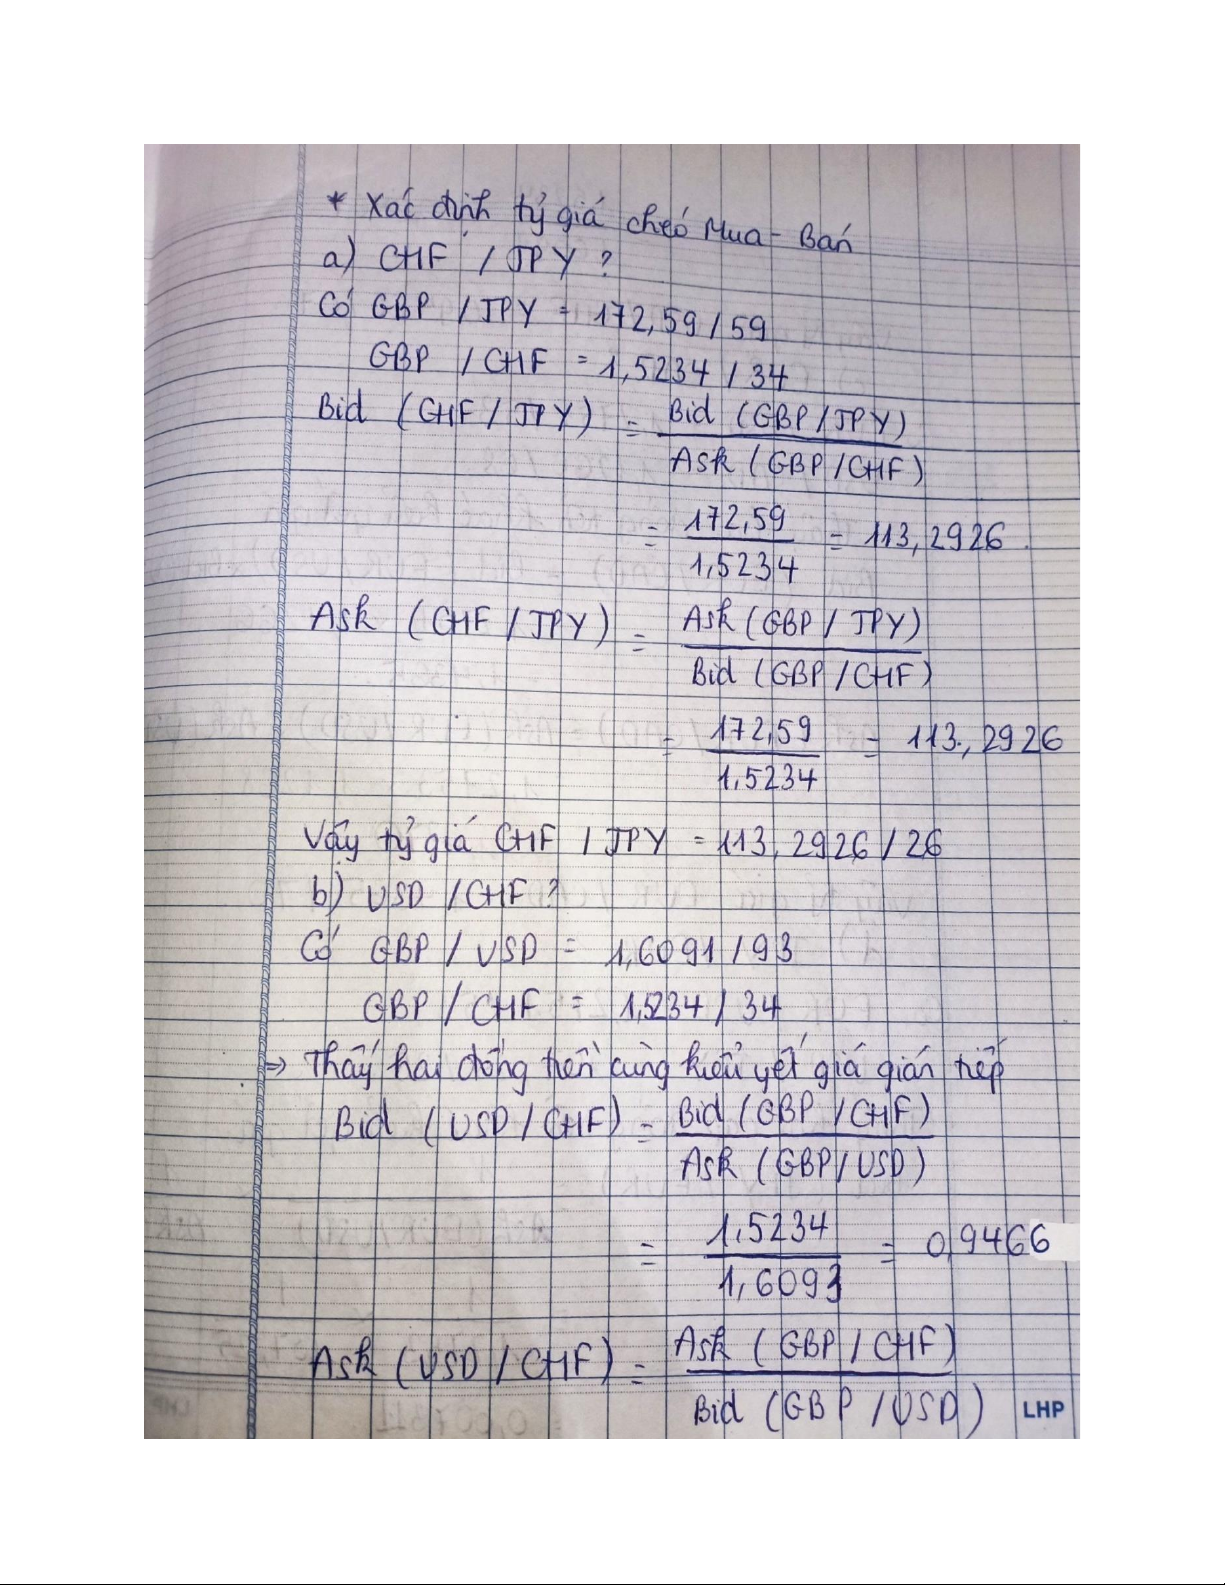 * Xác định tỷ giá chéo Mua - Bán
a) CHF / JPY ?
Có GBP / JPY = 172,59 / 59
GBP / CHF = 1,5234 / 34
Bid (CHF / JPY) = Bid (GBP / JPY)
Ask (GBP / CHF)
= 172,59 = 113,2926
1,5234
Ask (CHF / JPY) = Ask (GBP / JPY)
Bid (GBP / CHF)
= 172,59 = 113,2926
1,5234
Vậy tỷ giá CHF / JPY = 113,2926 / 26
b) USD / CHF ?
Có GBP / USD = 1,6091 / 93
GBP / CHF = 1,5234 / 34
=> Thấy hai đồng tiền cùng kiểu yết giá gián tiếp
Bid (USD / CHF) = Bid (GBP / CHF)
Ask (GBP / USD)
= 1,5234 = 0,9466
1,6093
Ask (USD / CHF) = Ask (GBP / CHF)
Bid (GBP / USD)
LHP